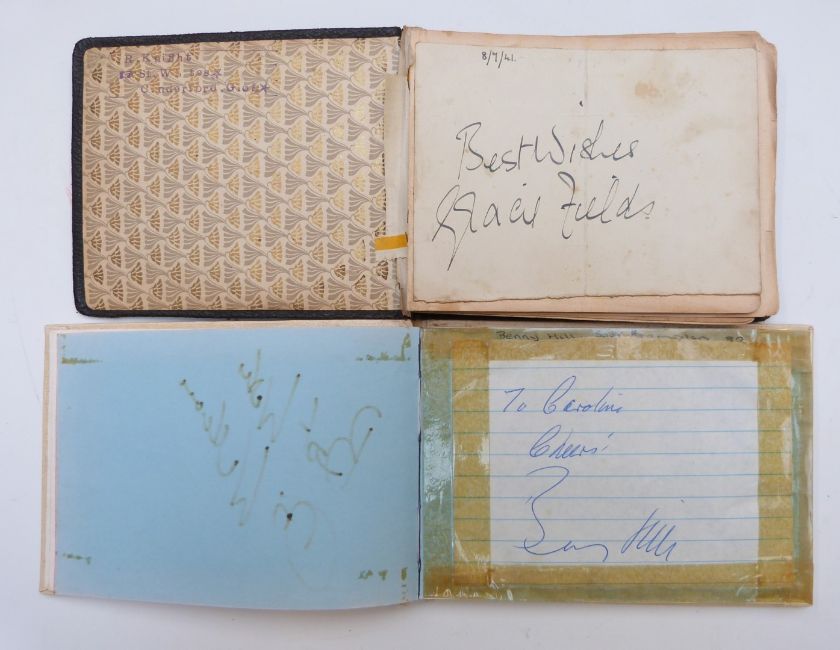 R. Knight
Cinderford. Glos
8/7/41.
Best Wishes
Gracie Fields
Benny Hill
To Caroline
Cheers!
Benny Hill